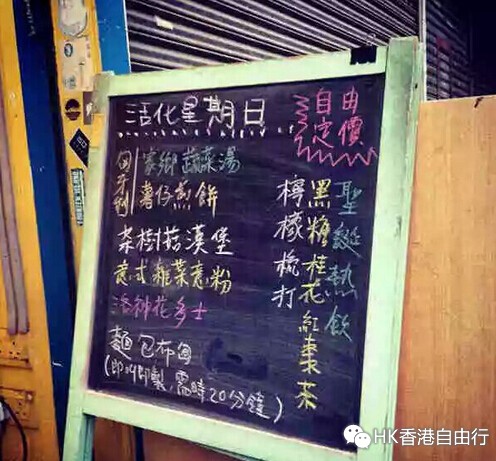 活化星期日
自由
定價
匈牙利
家鄉蔬菜湯
薯仔煎餅
茶樹菇漢堡
意式雜菜意粉
洛神花多士
麵包布甸
(即叫即製,需時20分鐘)
聖誕熱飲
黑糖桂花紅棗茶
檸檬梳打
HK香港自由行